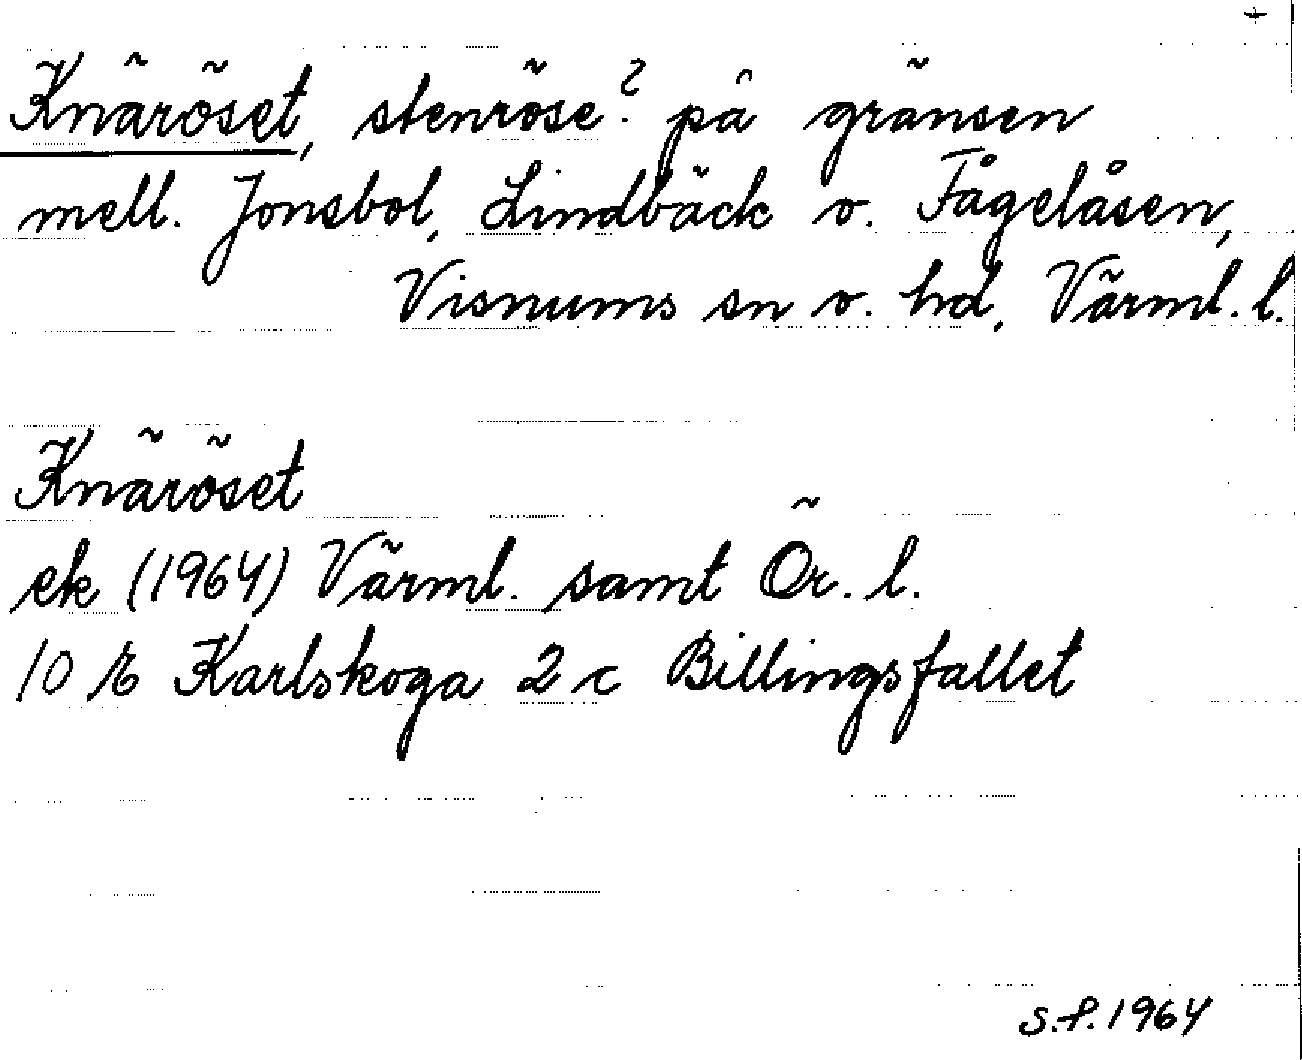 +
Knäröset, stenröse? på gränsen
mell. Jonsbol, Lindbäck o. Fågelåsen,
Visnums sn o. hd, Värml. l.
Knäröset
ek (1964) Värml. samt Ör. l.
10 E Karlskoga 2 c Billingsfallet
s.f. 1964